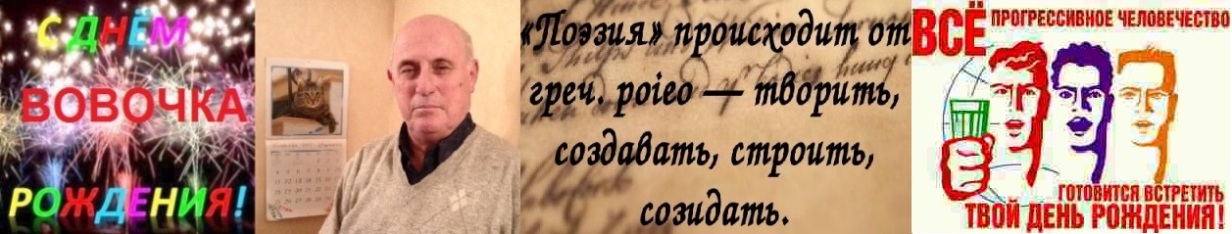 С ДНЁМ
ВОВОЧКА
РОЖДЕНИЯ!
«Поэзия» происходит от
греч. poieo — творить,
создавать, строить,
созидать.
ВСЁ ПРОГРЕССИВНОЕ ЧЕЛОВЕЧЕСТВО
ГОТОВИТСЯ ВСТРЕТИТЬ
ТВОЙ ДЕНЬ РОЖДЕНИЯ!